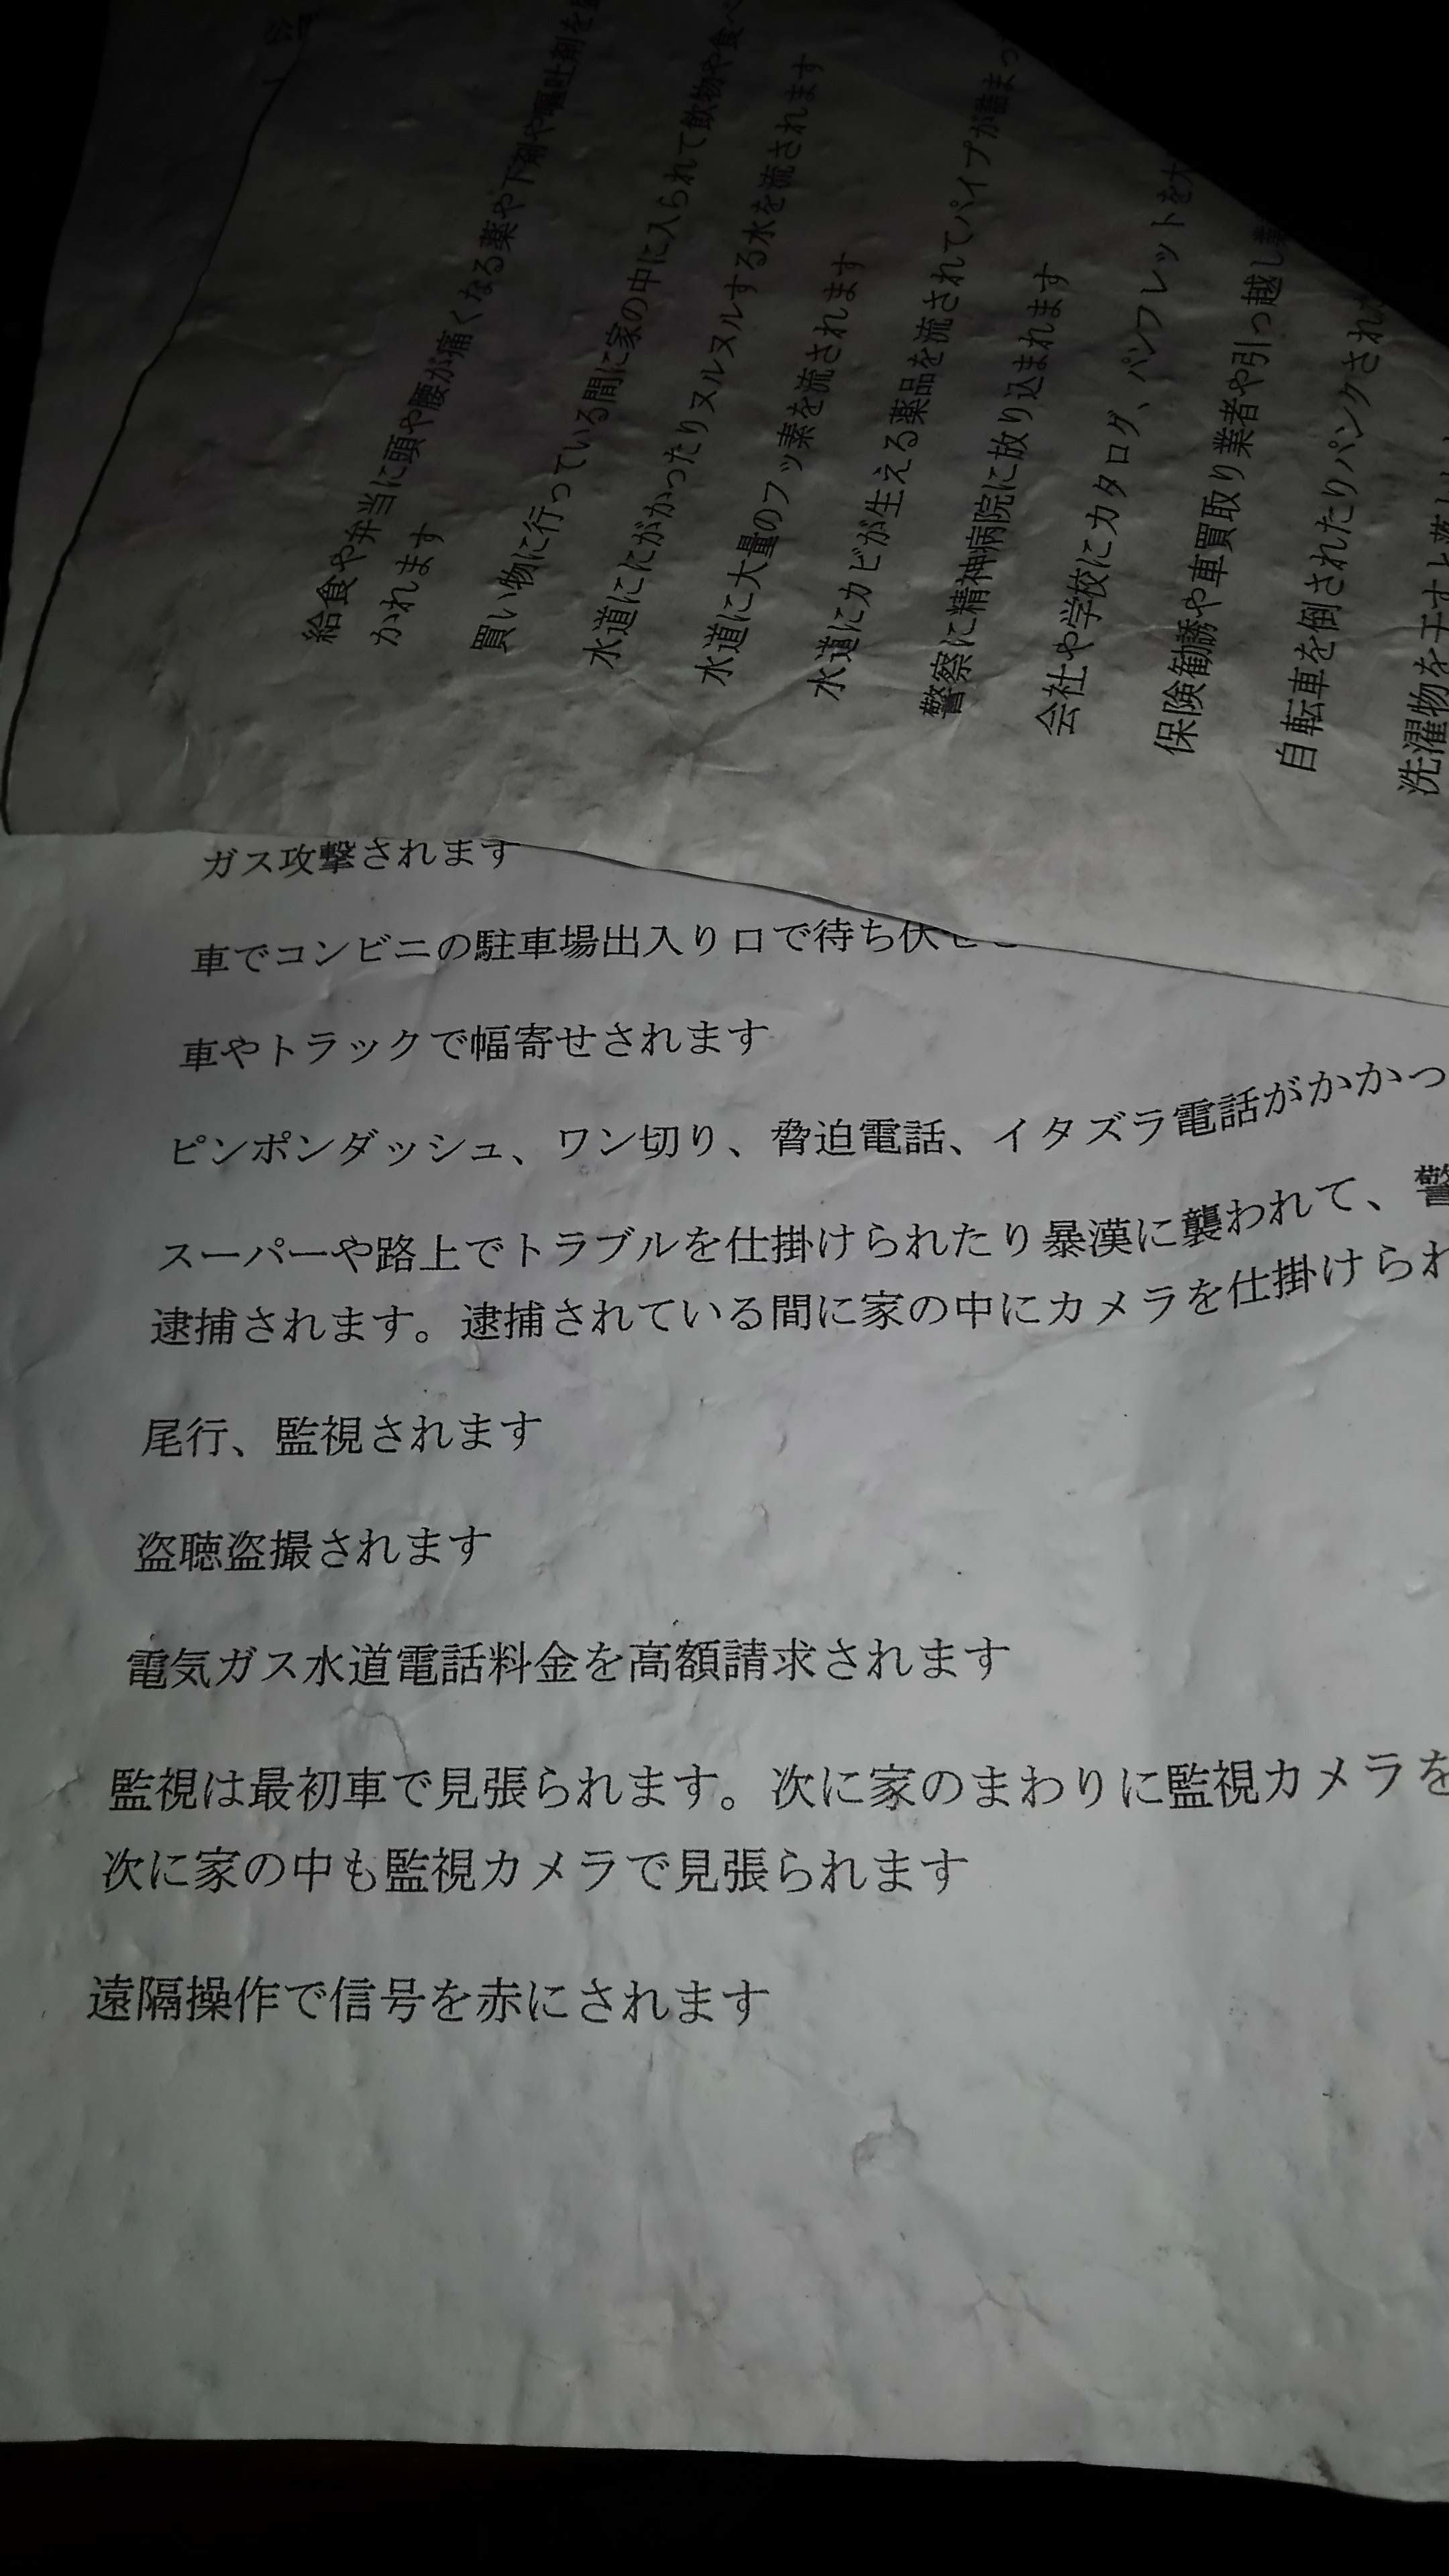 給食や弁当に頭や腰が痛くなる薬や下剤や嘔吐剤を
かれます
買い物に行っている間に家の中に入られて飲物や食べ
水道ににがかったりヌルヌルする水を流されます
水道に大量のフッ素を流されます
水道にカビが生える薬品を流されてパイプが詰まっ
警察に精神病院に放り込まれます
会社や学校にカタログ、パンフレットを大
保険勧誘や車買取り業者や引っ越し業
自転車を倒されたりパンクされ
洗濯物を干すと
ガス攻撃されます
車でコンビニの駐車場出入り口で待ち伏せ
車やトラックで幅寄せされます
ピンポンダッシュ、ワン切り、脅迫電話、イタズラ電話がかかっ
スーパーや路上でトラブルを仕掛けられたり暴漢に襲われて、警
逮捕されます。逮捕されている間に家の中にカメラを仕掛けられ
尾行、監視されます
盗聴盗撮されます
電気ガス水道電話料金を高額請求されます
監視は最初車で見張られます。次に家のまわりに監視カメラを
次に家の中も監視カメラで見張られます
遠隔操作で信号を赤にされます